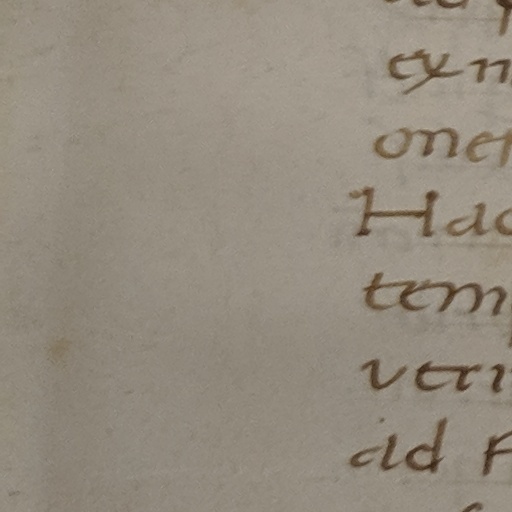 exn
onet
Hac
tem
veri
ad F